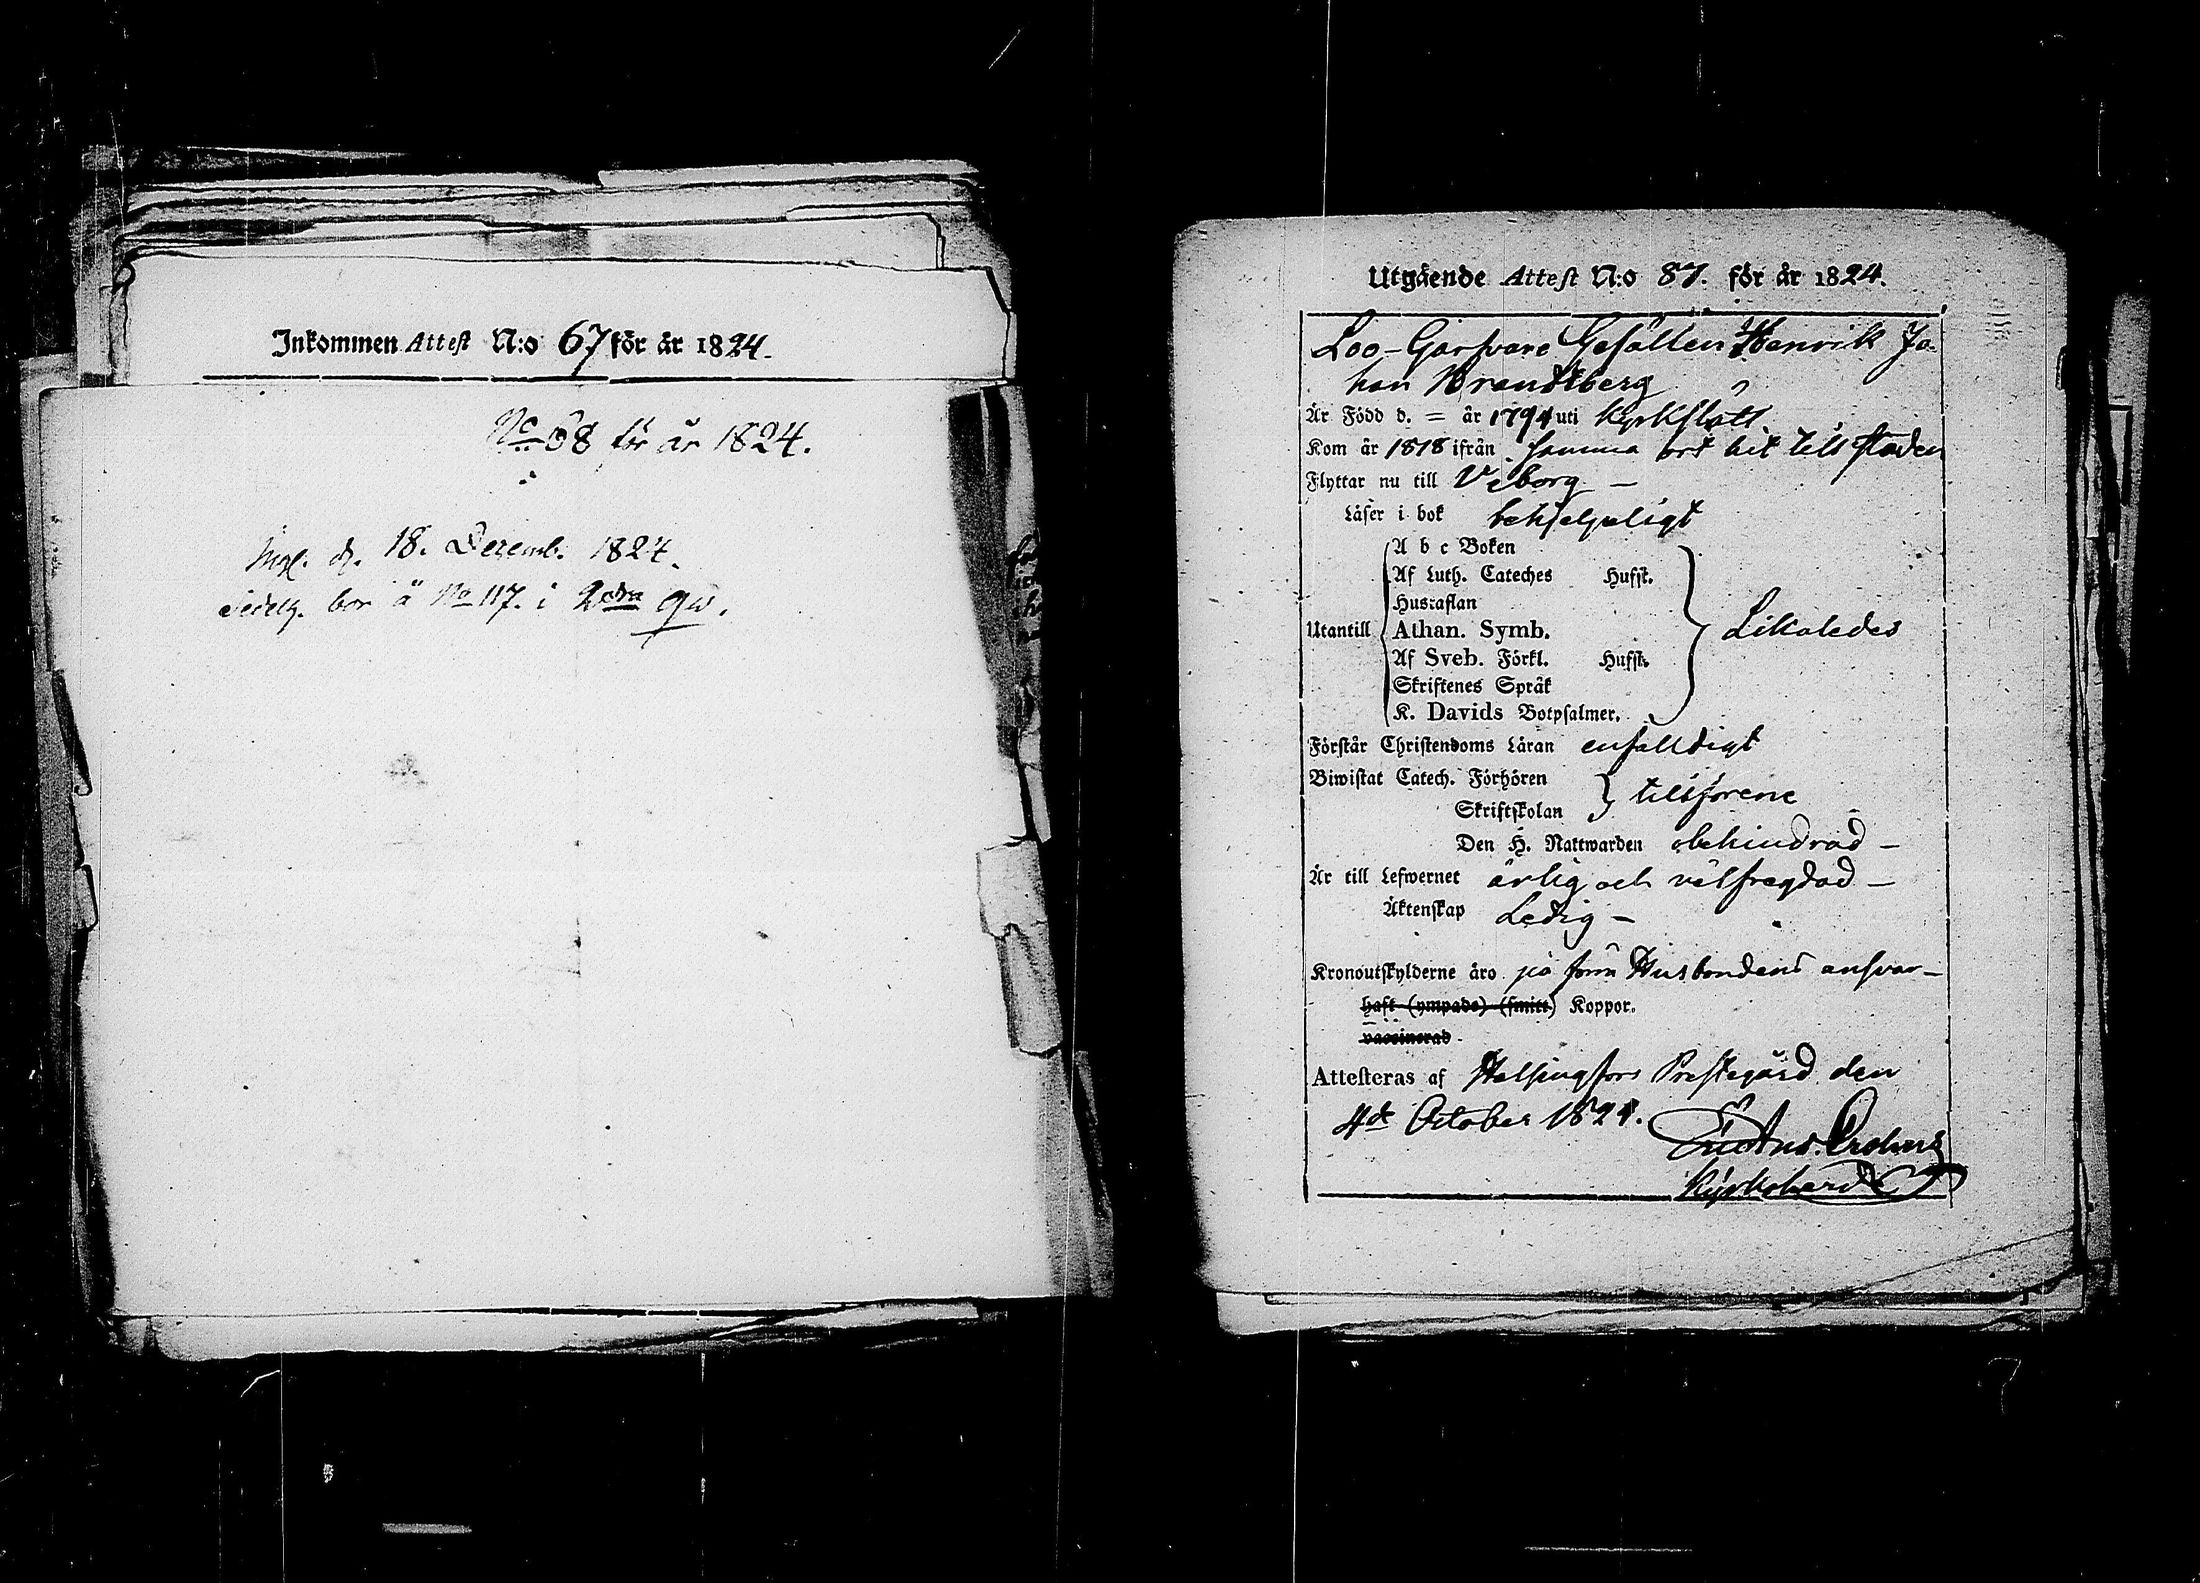 Inkommen Attest N:o 67 för år 1824.
No 68 för år 1824.
d. 18. Decemb. 1824.
bor å No 117. i 2dra qw.
Utgående Attest N:o 87. för år 1824.
Loo-Garfvare Gesällen Henrik Jo-
han Strandberg
Är Född d. = år 1794 uti Kyrkslätt
Kom år 1818 ifrån samma ort hit till staden
Flyttar nu till Viborg —
Läser i bok behjelpeligt
A b c Boken
Af Luth. Cateches Hufst.
Hustaflan
Utantill Athan. Symb. Likaledes
Af Sveb. Förkl. Hufst.
Skriftenes Språk
K. Davids Botpsalmer.
Förstår Christendoms Läran enfalldigt
Biwistat Catech. Förhören
Skriftskolan tillförene
Den H. Nattwarden obehindrad —
Är till Lefwernet ärlig och välfregdad —
Äktenskap Ledig —
Kronoutskylderne äro på förra Husbondens ansvar —
haft (ympade) (smitt.) Koppor.
vaccinerad.
Attesteras af Helsingfors Prestegård den
4de October 1824.
Kyrkoherde